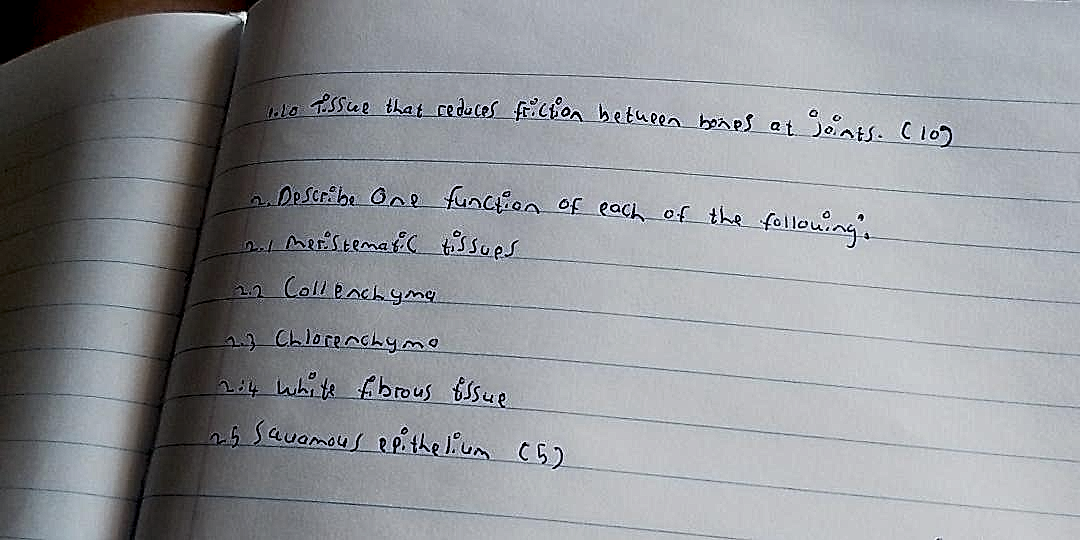 1.10 tissue that reduces friction between bones at joints. (10)
2. Describe One function of each of the following:
2.1 meristematic tissues
2.2 Collenchyma
2.3 Chlorenchyma
2.4 White fibrous tissue
2.5 Squamous epithelium (5)